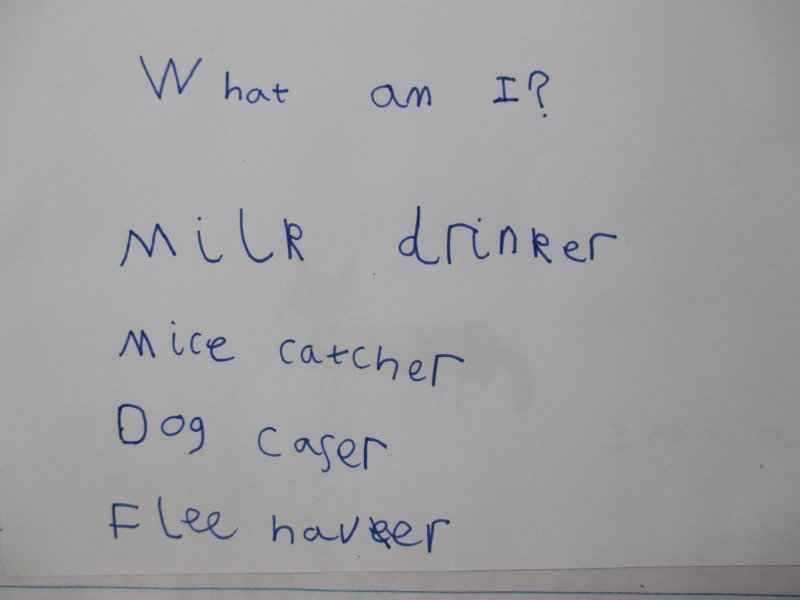 What am I?
Milk drinker
Mice catcher
Dog caser
Flee haveer